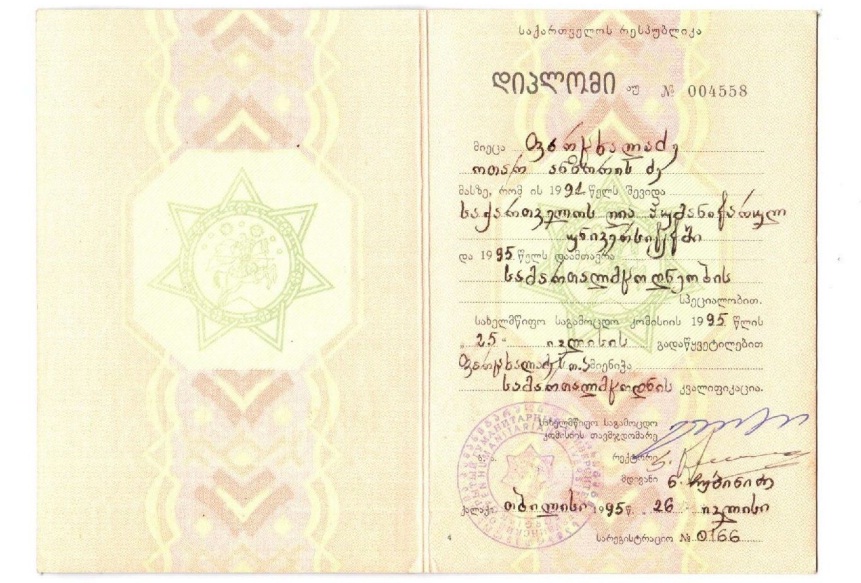 საქართველოს რესპუბლიკა
დიპლომი აუ № 004558
მიეცა ფარცხალაძე
ოთარ ანზორის ძე
მასზე, რომ ის 1991 წელს შევიდა
საქართველოს ღია ჰუმანიტარულ
უნივერსიტეტში
და 1995 წელს დაამთავრა
სამართალმცოდნეობის
სპეციალობით.
სახელმწიფო საგამოცდო კომისიის 1995 წლის
25 ივლისის გადაწყვეტილებით
ფარცხალაძეს ო.ა. მიენიჭა
სამართალმცოდნის კვალიფიკაცია.
სახელმწიფო საგამოცდო
კომისიის თავმჯდომარე
რექტორი
მდივანი ნ.
ქალაქი თბილისი 1995 წ. 26 ივლისი
სარეგისტრაციო № 0166